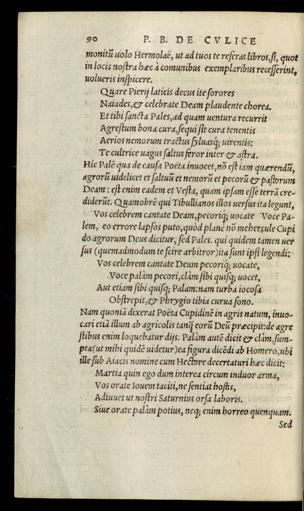 90 P. B. DE CVLICE
monitũ uolo Hermolaë, ut ad tuos te referat libros, si, quot
in locis nostra hæc à comunibus exemplaribus recesserint,
uolueris inspicere.
Quare Pierij laticis decus ite sorores
Naiades, & celebrate Deam plaudente chorea.
Et tibi sancta Pales, ad quam uentura recurrit
Agrestum bona cura. sequi sit cura tenentis
Aerios nemorum tractus syluasq; uirentis:
Te cultrice uagus saltus feror inter & astra.
Hic Palẽ qua de causa Poëta inuocet, nõ est iam quærendũ,
agrorũ uidelicet et saltuũ et nemorũ et pecorũ & pastorum
Deam: est enim eadem et Vesta, quam ipsam esse terrã cre=
diderũt. Quamobrẽ qui Tibullianos illos uersus ita legunt,
Vos celebrem cantate Deam, pecoriq; uocate Voce Pa=
lem, eo errore lapsos puto, quòd planè nõ mehercule Cupi
do agrorum Deus dicitur, sed Pales. qui quidem tamen uer
sus (quemadmodum te scire arbitror) ita sunt ipsi legendi:
Vos celebrem cantate Deum pecoriq; uocate,
Voce palàm pecori, clàm sibi quisq; uocet,
Aut etiam sibi quisq; Palàm: nam turba iocosa
Obstrepit, & Phrygio tibia curua sono.
Nam quoniã dixerat Poëta Cupidinẽ in agris natum, inuo=
cari eũã illum ab agricolis tanq̃ eorũ Deũ præcipit: de agre
stibus enim loquebatur dijs. Palàm autẽ dicit & clàm, sum=
pta (ut mihi quidẽ uidetur) ea figura dicẽdi ab Homero, ubi
ille sub Aiacis nomine cum Hectore decertaturi hæc dicit:
Martia quin ego dum interea circum induor arma,
Vos orate Iouem taciti, ne sentiat hostis,
Adiuuet ut nostri Saturnius orsa laboris.
Siue orate palàm potius, neq; enim horreo quenquam.
Sed